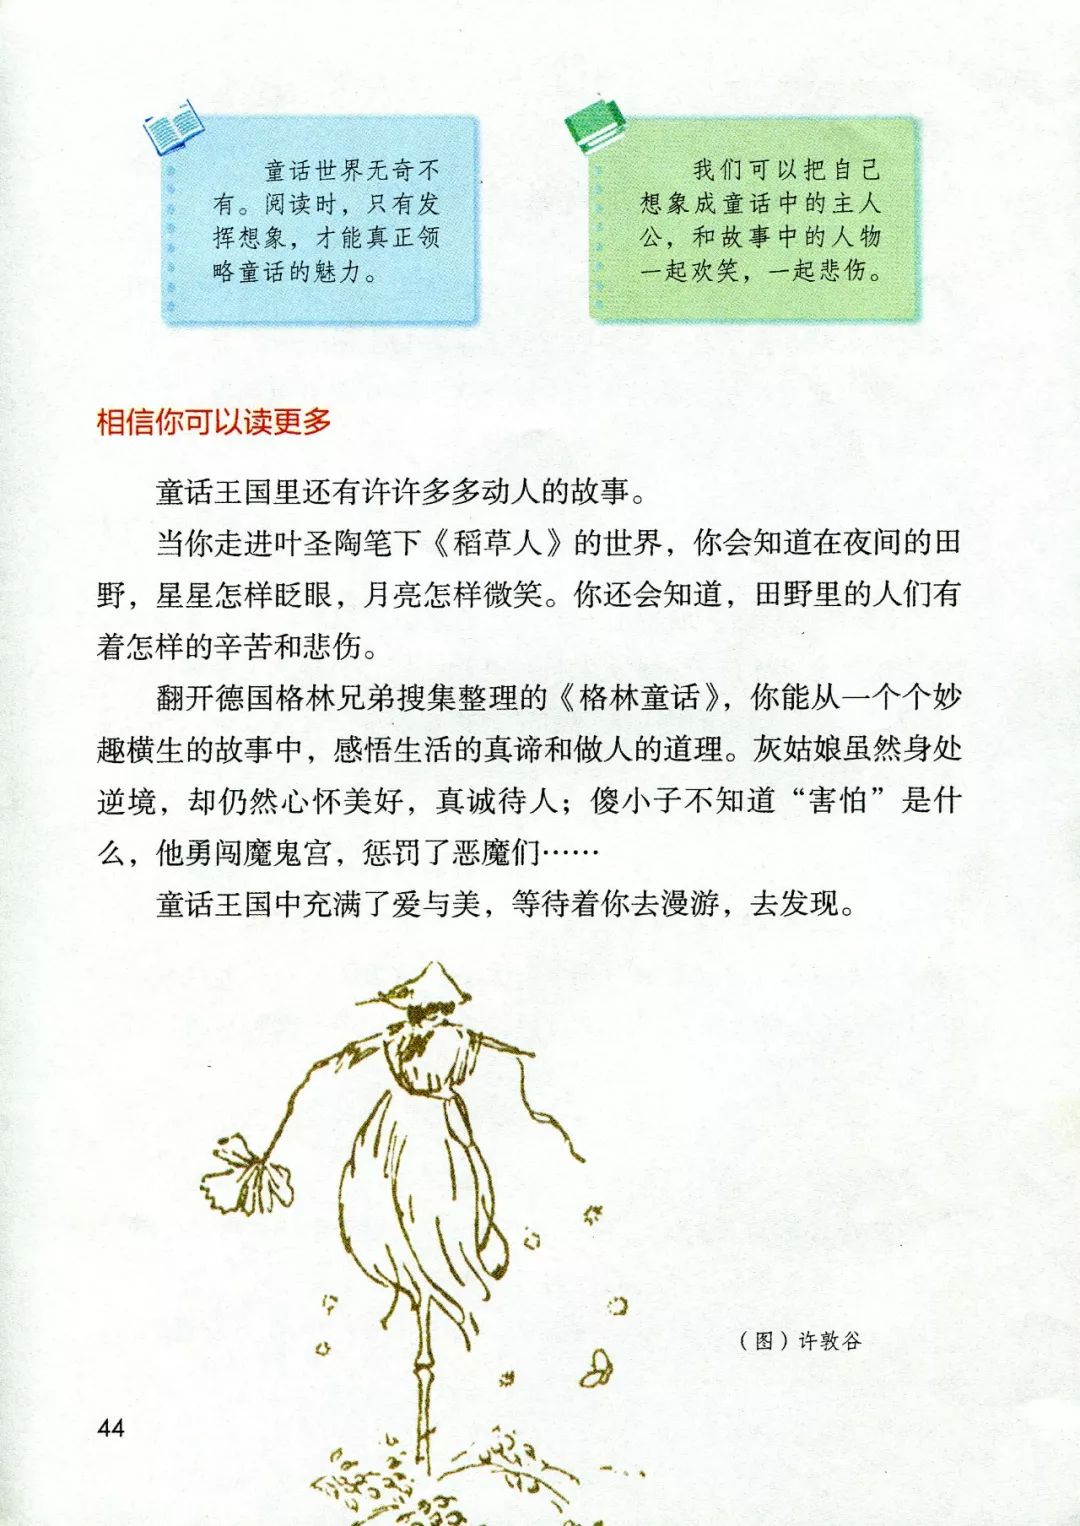 童话世界无奇不
有。阅读时，只有发
挥想象，才能真正领
略童话的魅力。
我们可以把自己
想象成童话中的主人
公，和故事中的人物
一起欢笑，一起悲伤。
相信你可以读更多
童话王国里还有许许多多动人的故事。
当你走进叶圣陶笔下《稻草人》的世界，你会知道在夜间的田
野，星星怎样眨眼，月亮怎样微笑。你还会知道，田野里的人们有
着怎样的辛苦和悲伤。
翻开德国格林兄弟搜集整理的《格林童话》，你能从一个个妙
趣横生的故事中，感悟生活的真谛和做人的道理。灰姑娘虽然身处
逆境，却仍然心怀美好，真诚待人；傻小子不知道“害怕”是什
么，他勇闯魔鬼宫，惩罚了恶魔们……
童话王国中充满了爱与美，等待着你去漫游，去发现。
（图）许敦谷
44